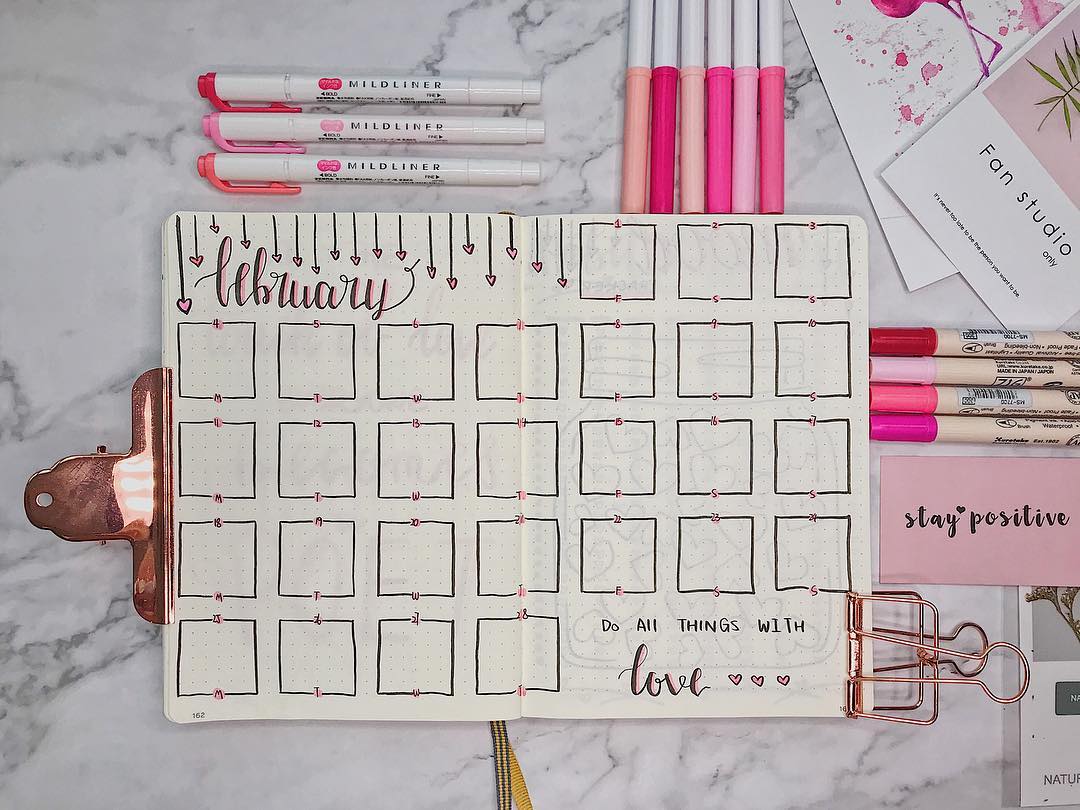 MILDLINER
◀BOLD FINE▶
MILDLINER
◀BOLD FINE▶
MILDLINER
◀BOLD FINE▶
Fan studio
only
It's never too late to be the person you want to be.
february
1 2 3
F S S
4 5 6 7 8 9 10
M T W T F S S
11 12 13 14 15 16 17
M T W T F S S
18 19 20 21 22 23 24
M T W T F S S
25 26 27 28
M T W T
DO All THINGS WITH
love
162
16
MS-7700
Brush
URL:www.kuretake.co.jp
MADE IN JAPAN / JAPON
MS-7700
Brush
Waterproof
Kuretake Est.1902
stay positive
NA
NATUR